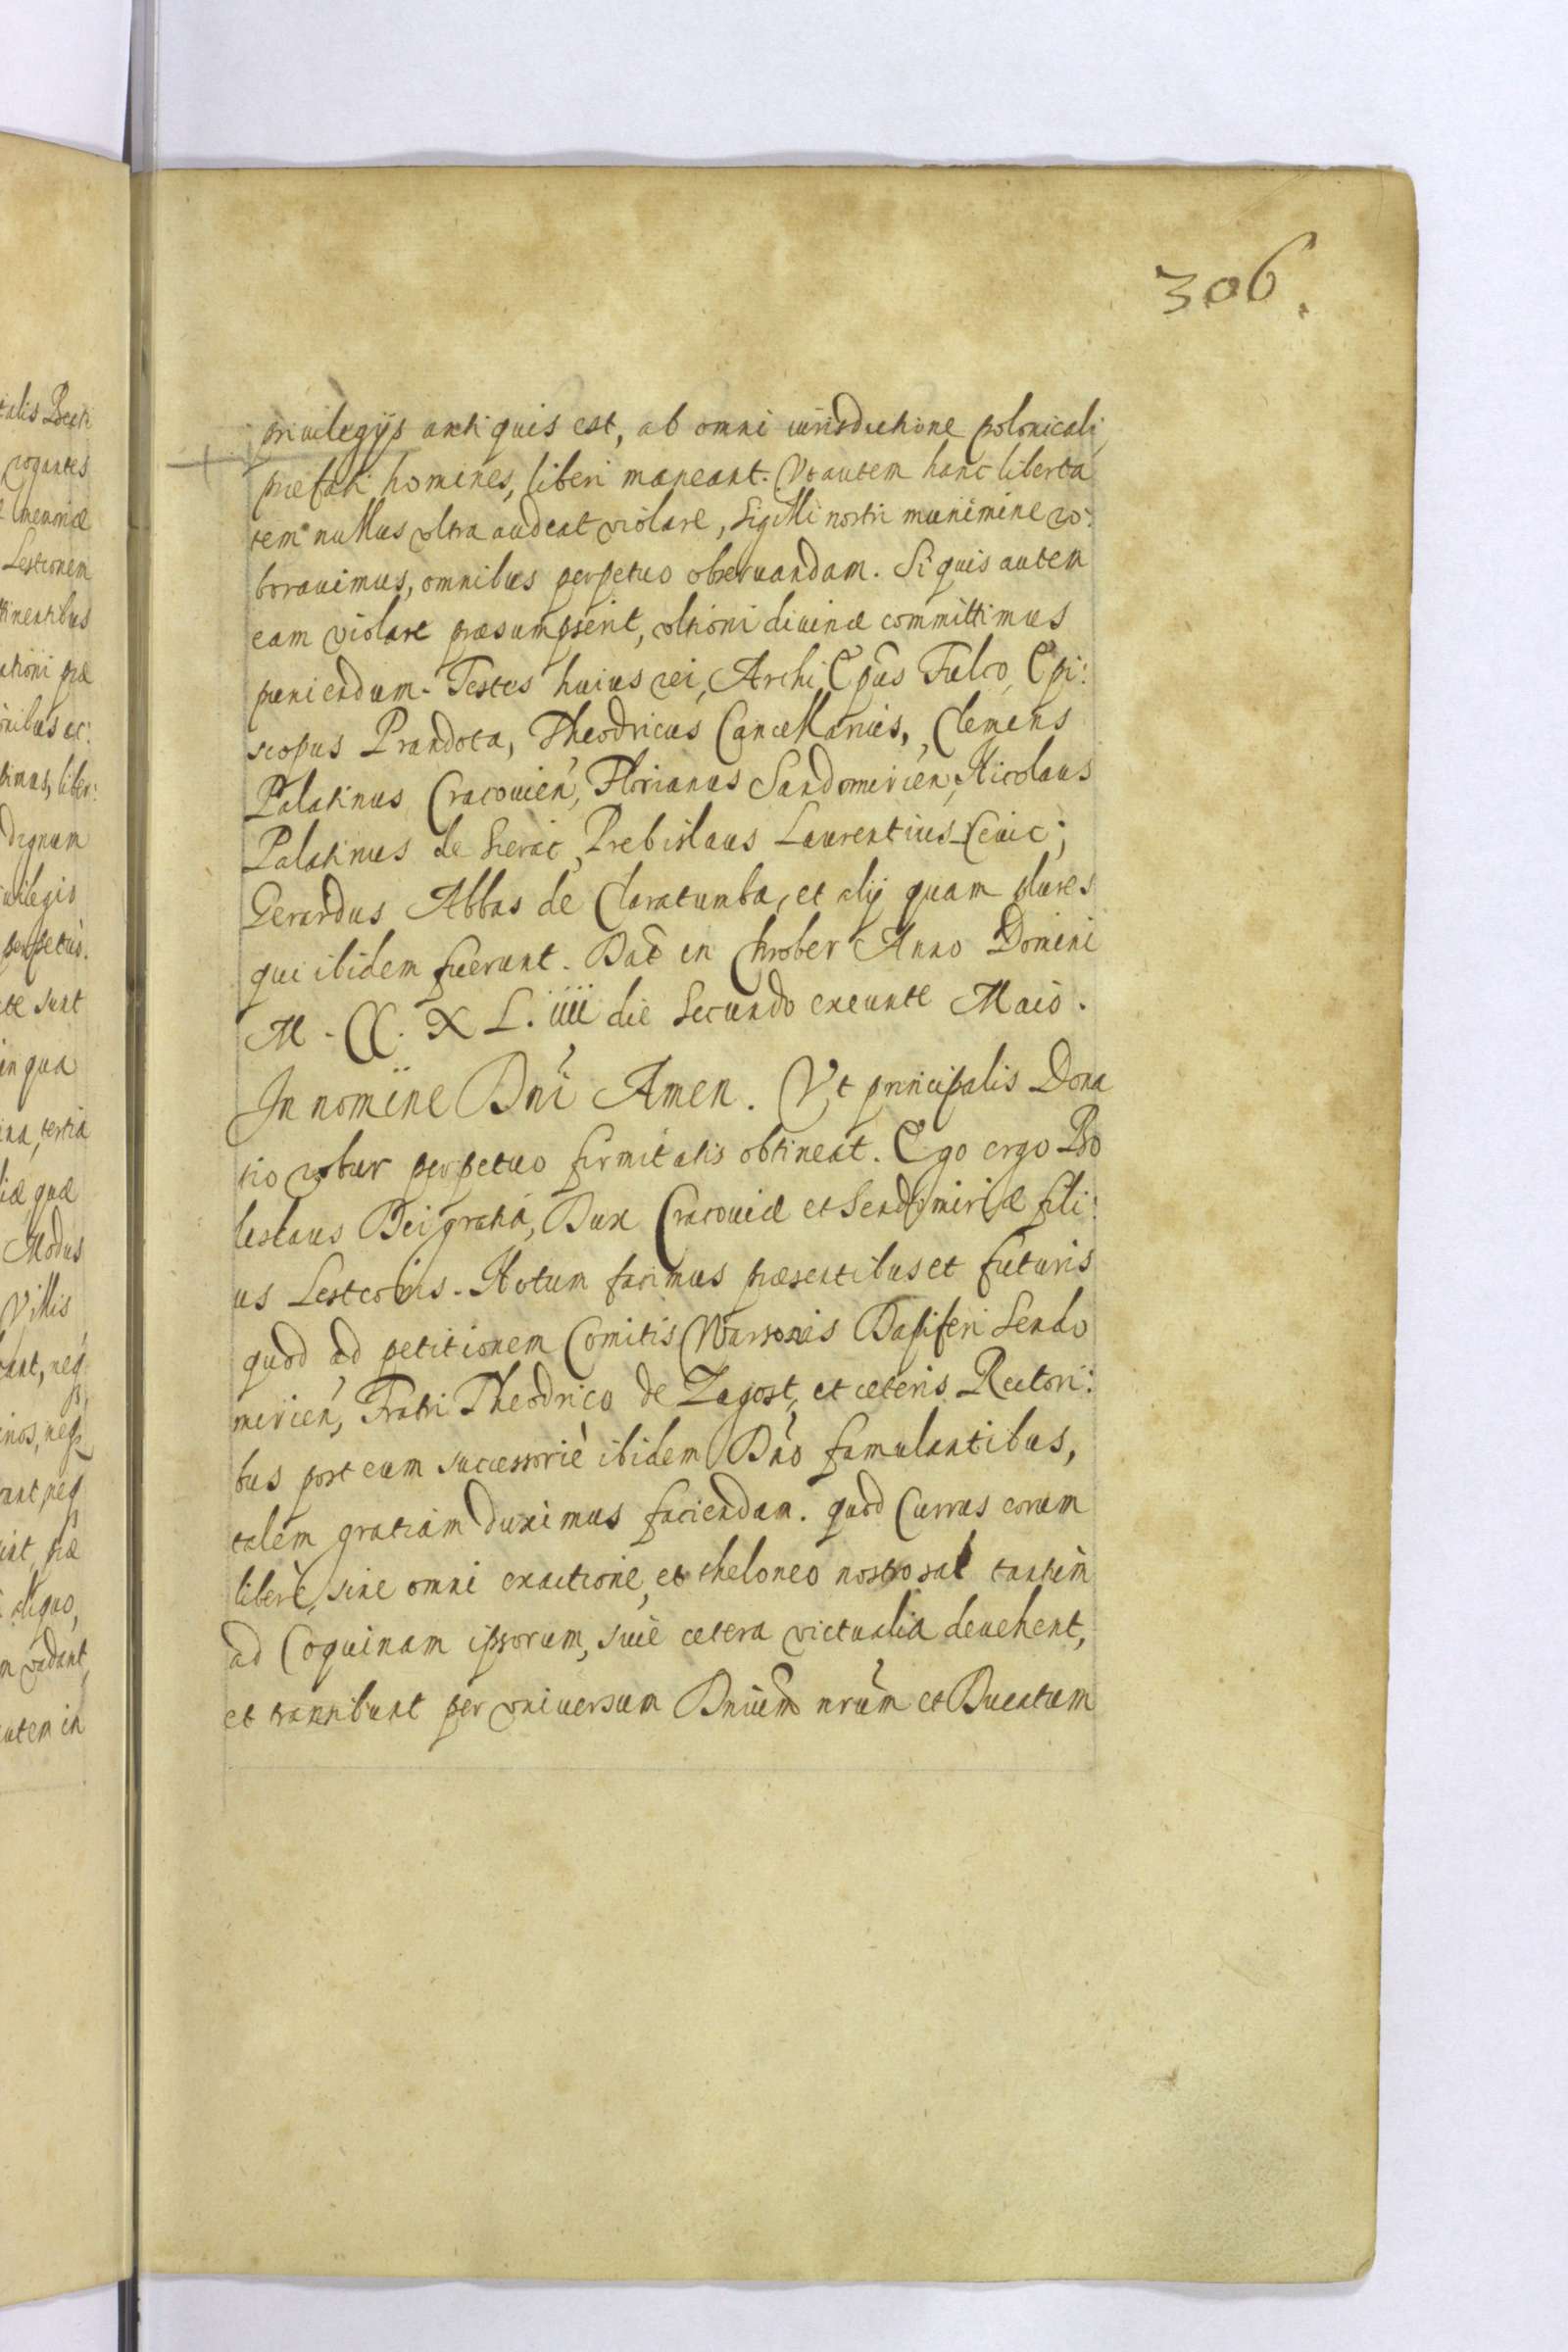 306.
priuilegijs antiquis est, ab omni iurisdictione polonicali
præfati homines, liberi maneant. Vt autem hanc liberta
tem nullus vltra audeat violare, Sigilli nostri munimine ro:
borauimus, omnibus perpetuo obseruandam. Si quis autem
eam violare præsumpserit, vltioni diuinæ committimus
puniendum. Testes huius rei, Archi Epũs Fulco, Epi:
scopus Prandota, Theodricus Cancellarius, Clemens
Palatinus Cracouien, Florianus Sandomirien, Nicolaus
Palatinus de Sierac, Prebislaus Laurentius
Gerardus Abbas de Claratumba, et alij quam plures
qui ibidem fuerunt. Dat in Chrober Anno Domini
M. CC. XL. iiii die Secundo exeunte Maio.
In nomine Dni Amen. Vt principalis Dona
tio robur perpetuo firmitatis obtineat. Ego ergo Bo
leslaus Dei gratia, Dux Cracouiæ et Sendomiriæ fili:
us Lestconis. Notum facimus præsentibus et futuris
quod ad petitionem Comitis Warsonis Dapiferi Sendo
mirien, Fratri Theodrico de Zagost, et ceteris Rectori:
bus post eum successoriè ibidem Dno famulantibus,
talem gratiam duximus faciendam. quod Currus eorum
liberè, sine omni exactione, et theloneo nostro sal tantùm
ad Coquinam ipsorum, siuè cetera victualia deuehent,
et transibunt per vniuersum Dnium nrum et Ducatum